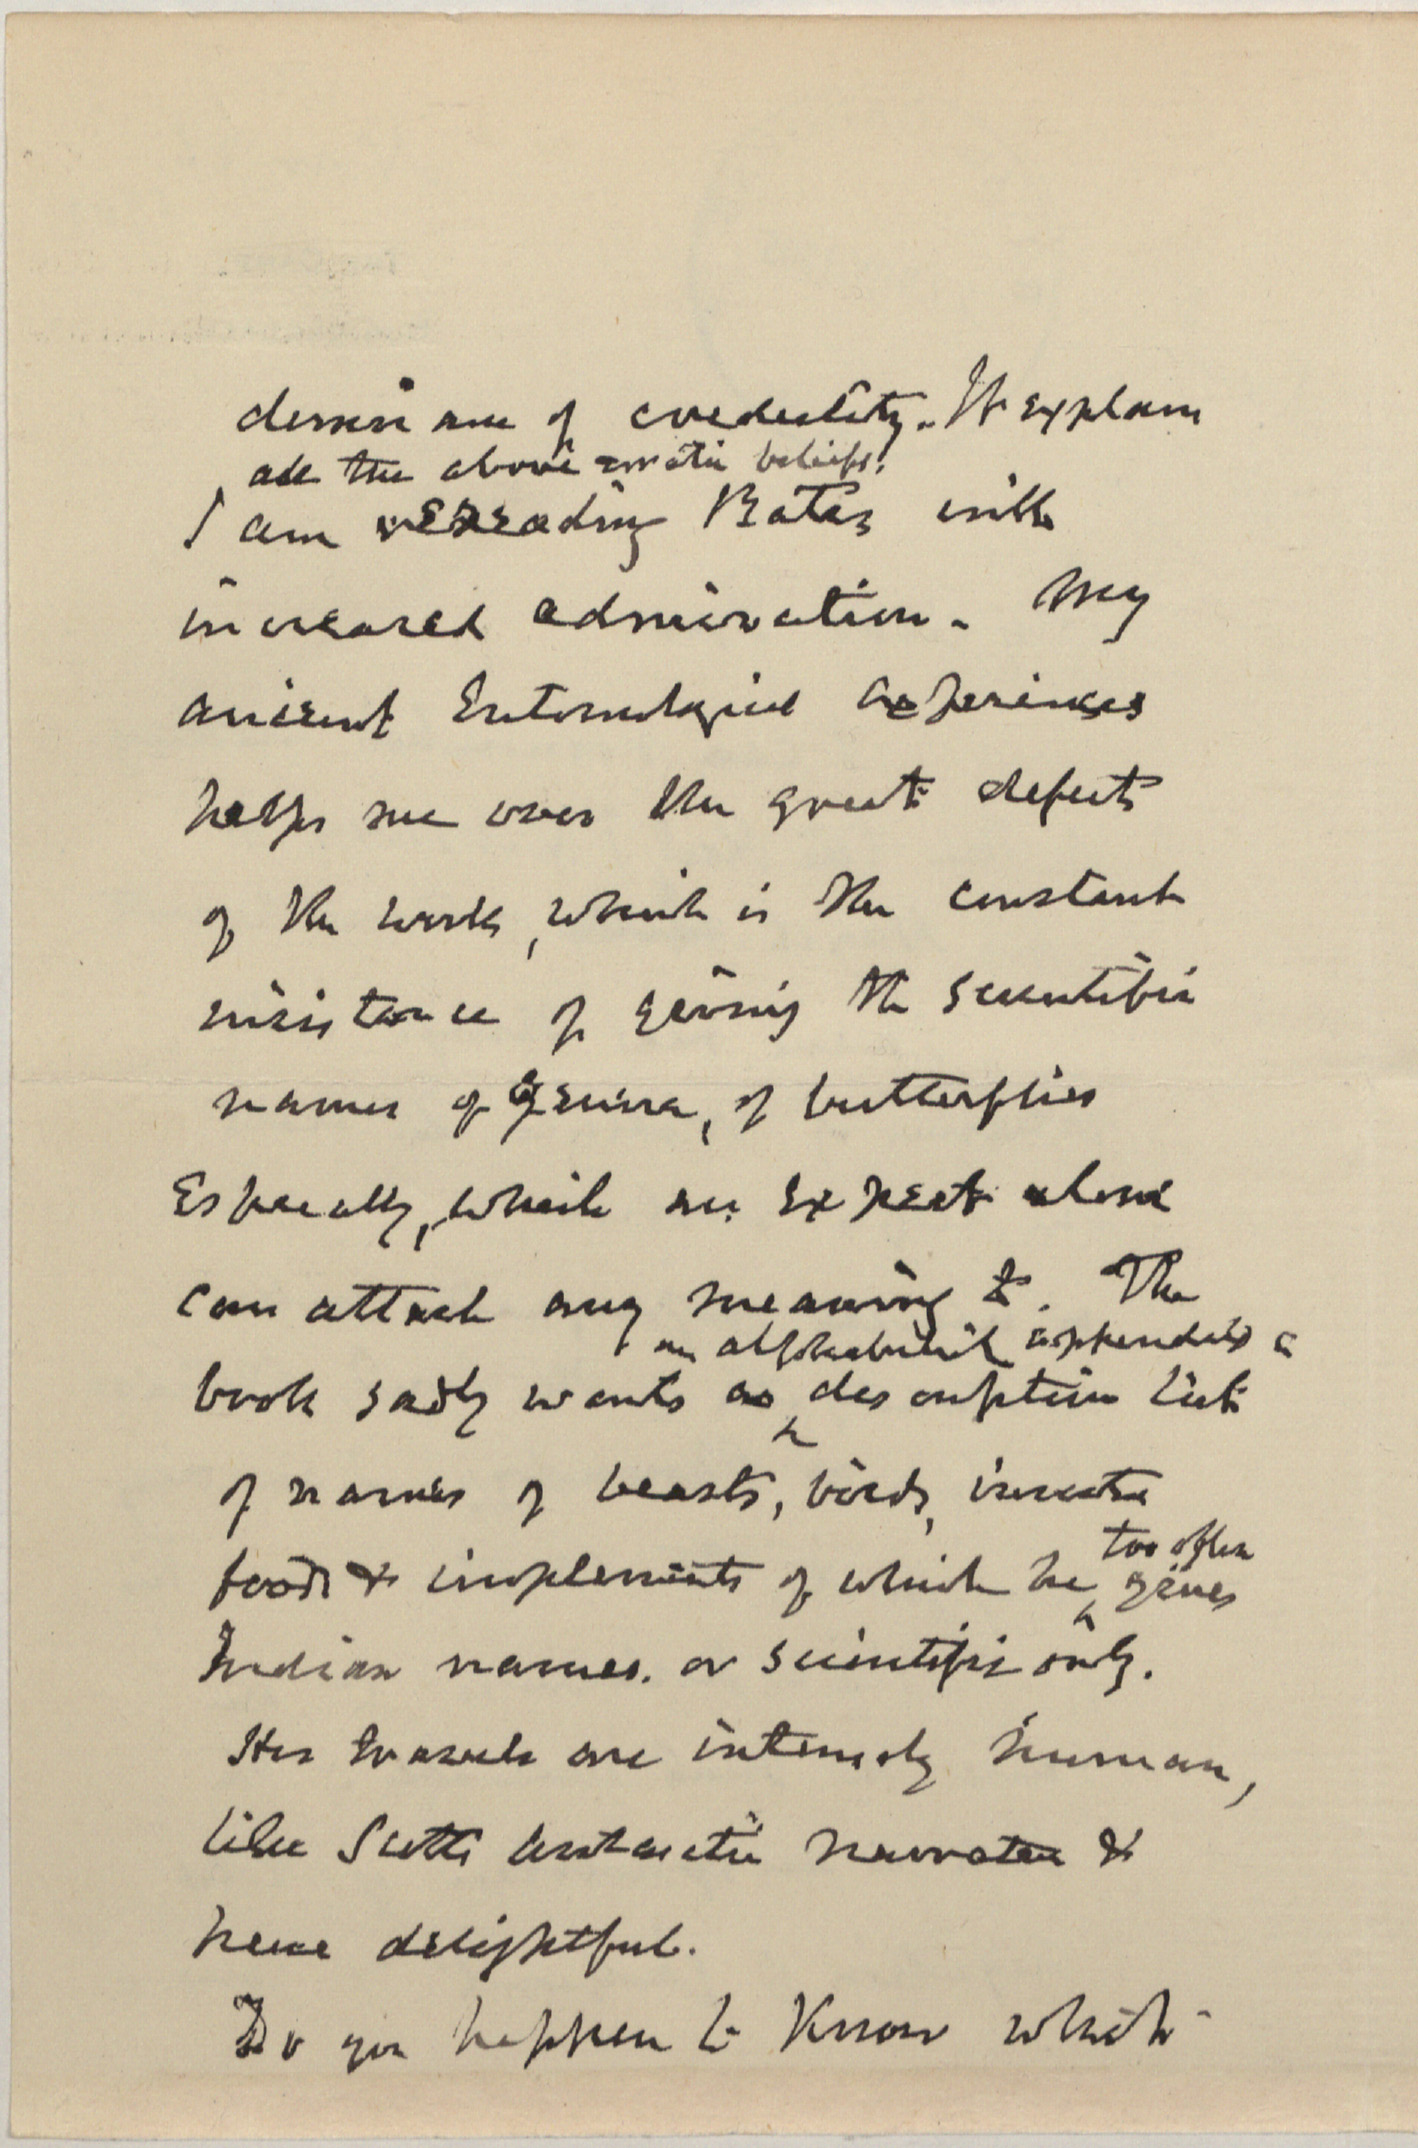 of credulity. It explains
all the above erratic beliefs.
I am rereading Bates with
increased admiration. My
ancient Entomological experiences
helps me over the great defects
of the work, which is the constant
insistance of giving the scientific
names of genera, of butterflies
Especially, which an expert alone
can attach any meaning to. The
an alphabetical appendix a
book sadly wants as descriptive list
of names of beasts, birds, insects
foods & implements of which he gives
too often
Indian names. or scientific only.
His travels are intensely human,
like Scotts Antarctic narrative &
hence delightful.
Do you happen to know which